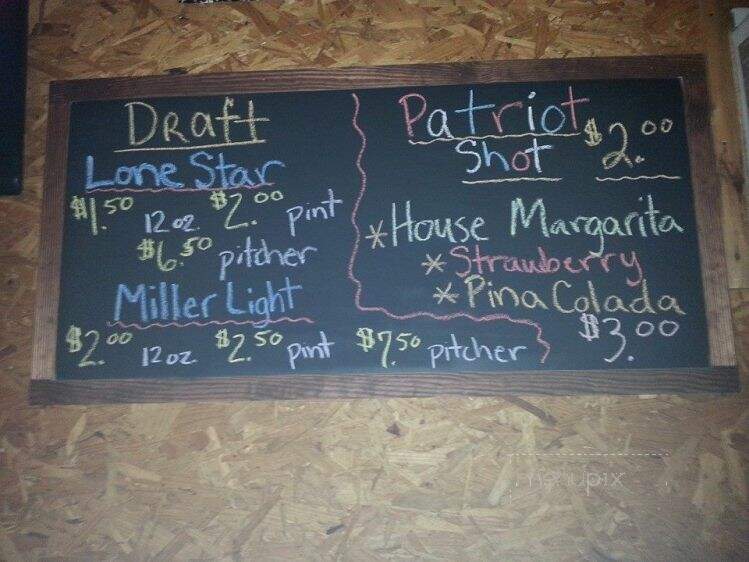 Draft
Lone Star
$1.50 12oz $2.00 pint
$6.50 pitcher
Miller Light
$2.00 12oz $2.50 pint $7.50 pitcher
Patriot
Shot $2.00
*House Margarita
*Strawberry
*Pina Colada
$3.00
menupix